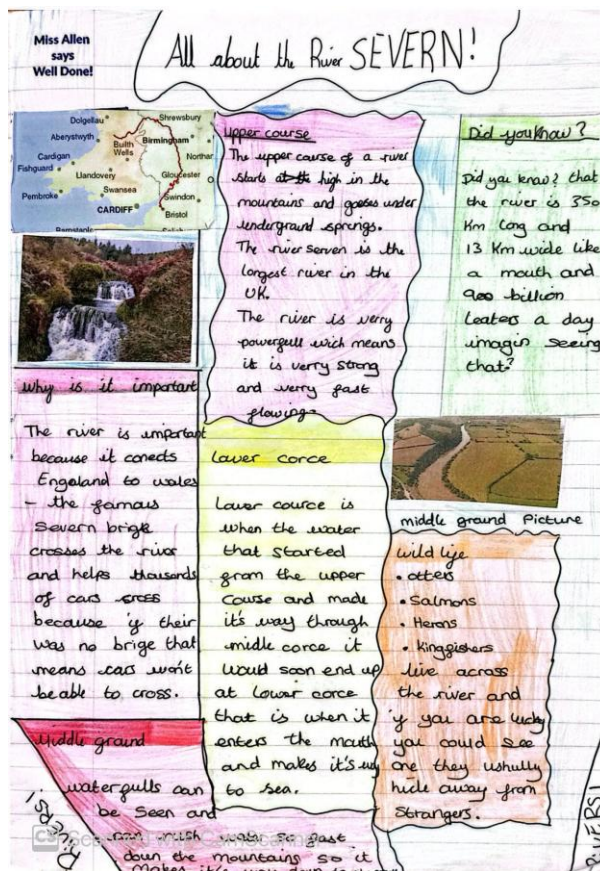 Miss Allen
says
Well Done!
All about the River SEVERN!
Dolgellau
Shrewsbury
Aberystwyth
Birmingham
Builth
Wells
Northar
Cardigan
Fishguard
Llandovery
Gloucester
Pembroke
Swansea
Swindon
CARDIFF
Bristol
upper course
The upper course of a river
starts high in the
mountains and goees under
underground springs.
The river serven is the
longest river in the
UK.
The river is verry
powerfull wich means
it is verry strong
and verry fast
flowing.
Did you know?
Did you know? that
the river is 350
Km long and
13 Km wide like
a mouth and
900 billion
leaters a day
imagin seeing
that?
why is it important
The river is important
because it conects
Engeland to wales
- the famous
Severn brige
crosses the river
and helps thousands
of cars cross
because if their
was no brige that
means cars won't
be able to cross.
Lower corce
Lower cource is
when the water
that started
from the upper
course and made
it's way through
midle corce it
would soon end up
at lower corce
that is when it
enters the mouth
and makes it's way
to sea.
middle ground Picture
wild life
• otters
• Salmons
• Herons
• Kingfishers
live across
the river and
if you are lucky
you could see
one they ushully
hide away from
strangers.
Middle ground
waterfulls can
be seen and
can rush water so fast
down the mountains so it
makes it's way down
RIVERS!
RIVERS!
CS Scanned with CamScanner